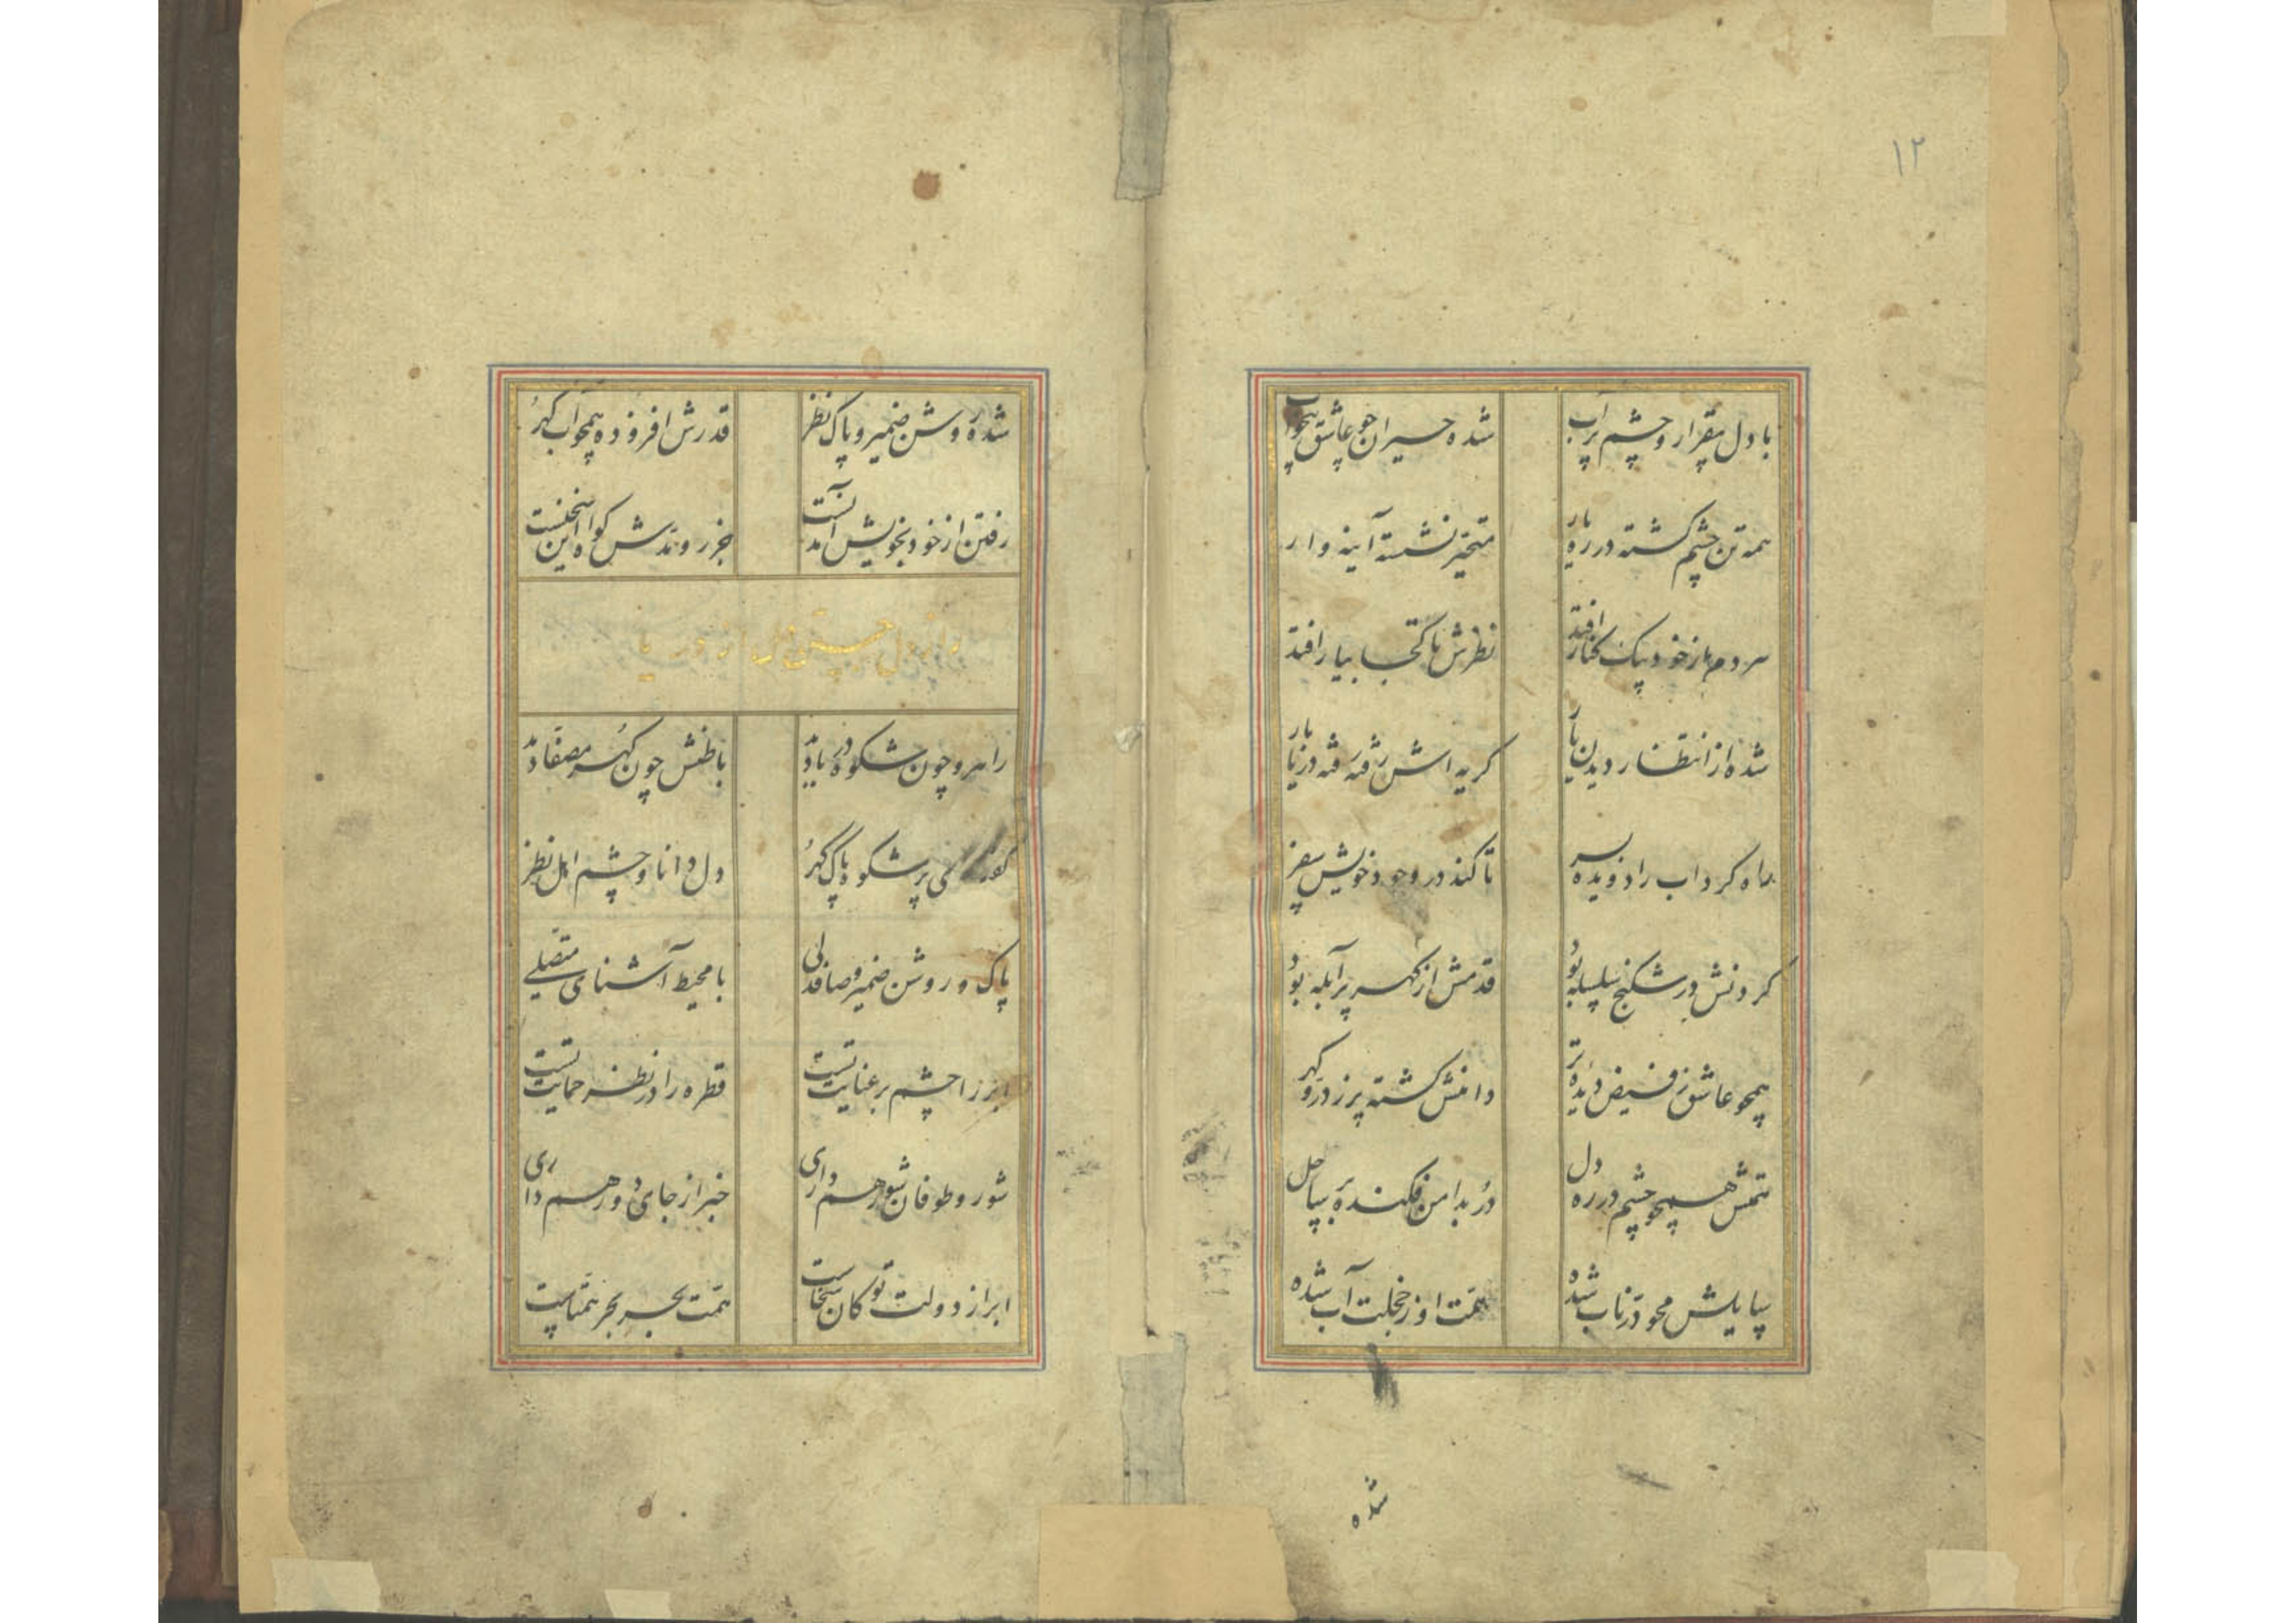 ۱۲
با دل بیقرار و چشم پرآب شده حیران چو عاشق بیخواب
همه تن چشم گشته در ره یار متحیر نشسته آینه وار
هر دم از خود بیک کنار افتد نظرش تا کجا بیار افتد
شده از انتظار دیدن یار گریه اش رفته رفته دریا بار
ماه گرداب را دویده بسر تا کند در وجود خویش سفر
گردنش در شکنج سلسله بود قدمش از گهر پر آبله بود
همچو عاشق ز فیض دیده تر دامنش گشته پر ز در و گهر
همتش همچو چشم در ره دل در بدامن فکنده بر ساحل
سایلش محو در ناب شده همت او ز خجلت آب شده
شده
شده روشن ضمیر و پاک نظر قدرش افزوده همچو آب گهر
رفتن از خود بخویش آمدنست جزر و مدش گواه این سخنست
راز دل جستن از دریا
راهرو چون شکوه دریا دید باطنش چون گهر مصفا دید
گفت کای پر شکوه پاک گهر دل دانا و چشم اهل نظر
پاک و روشن ضمیر و صافدلی با محیط آشنای متصلی
ابر را چشم بر عنایت تست قطره را در نظر حمایت تست
شور و طوفان بشور هم داری خبر از جای دور هم داری
ابر از دولت تو کان سخاست همتت بحر بحر همتاست